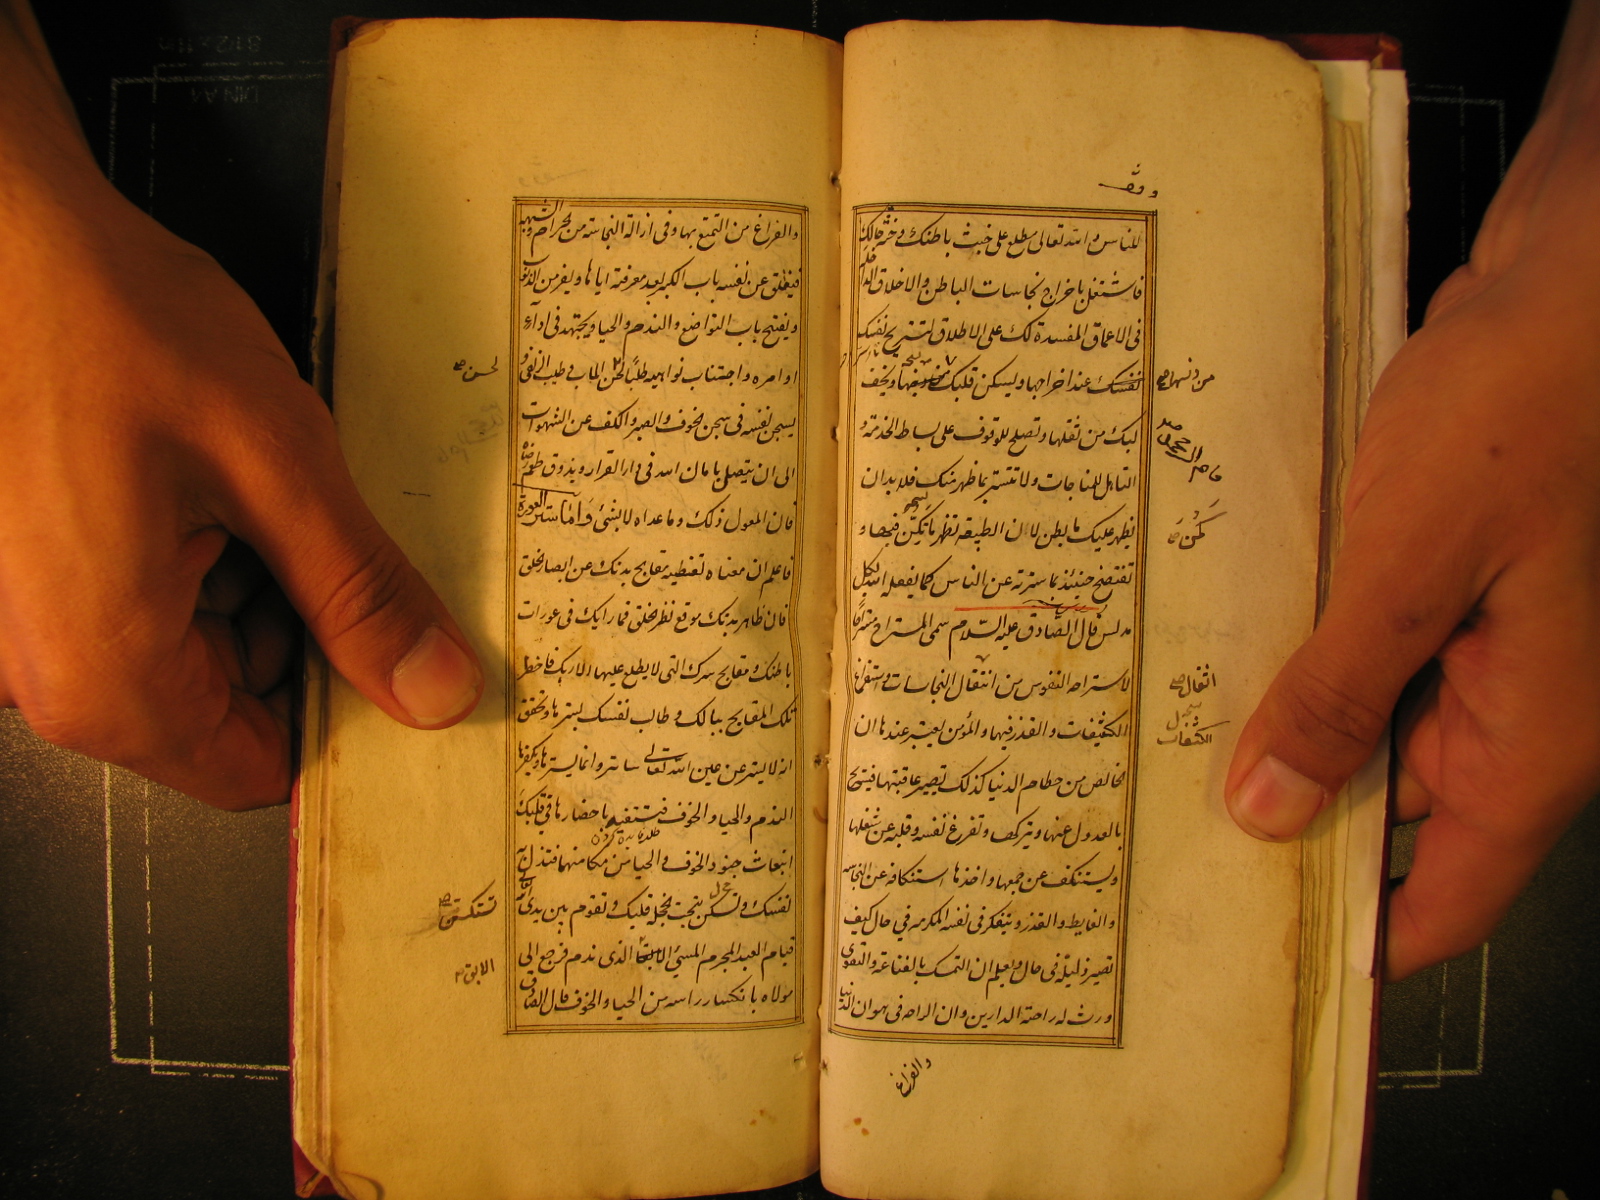 وقف
للناس والله تعالى مطلع على خبث باطنك وخسة حالك
فاشتغل باخراج نجاسات الباطن والاخلاق الداخلة
فى الاعماق المفسدة لك على الاطلاق لتستريح نفسك
نفسك عند اخراجها ويسكن قلبك من دنسها ويخف
لبك من ثقلها وتصلح للوقوف على بساط الخدمة و
التاهل للمناجات ولا تستتر بما ظهر منك فلا بد ان
يظهر عليك ما بطن لان الطبيعة تظهر ما تكمن فيها و
تفتضح حينئذ بما سترته عن الناس كما يفعله الله بكل
مدلس قال الصادق عليه السلام سمى المستراح مستراحا
لاستراحة النفوس من انتقال النجاسات واستفراغ
الكثيفات والقذر فيها والمؤمن يعتبر عندها ان
الخالص من حطام الدنيا كذلك تصير عاقبتها فيستريح
بالعدول عنها وتركها وتفرغ نفسه وقلبه عن شغلها
ويستنكف عن جمعها واخذها استنكافه عن النجاسة
والغايط والقذر ويتفكر فى نفسه المكرمة فى حال كيف
تصير ذليلة فى حال ويعلم ان التمسك بالقناعة والتقوى
يورث له راحة الدارين وان الراحة فى هوان الدنيا
والفراغ
من دنسها صح
اثقال صح
الكثيفات
والفراغ من التمتع بها وفى ازالة النجاسة من الحرام والشبهة
فيغلق عن نفسه باب الكبر بعد معرفته اياها ويفر من الذنوب
ويفتح باب التواضع والندم والحيا ويجتهد فى اداء
اوامره واجتناب نواهيه طلبا لحسن الماب وطيب الزلفى و
يسجن نفسه فى سجن الخوف والصبر والكف عن الشهوات
الى ان يتصل بامان الله فى دار القرار ويذوق طعم رضاه
فان المعول ذلك وما عداه لا بشئ واما ستر العورة
فاعلم ان معناه تغطية مقابح بدنك عن ابصار الخلق
فان ظاهر بدنك موقع نظر الخلق فما رايك فى عورات
باطنك ومقابح سرك التى لا يطلع عليها الا ربك فاخطر
تلك المقابح ببالك وطالب نفسك بسترها وتحقق
انه لا يستر عن عين الله تعالى ساتر وانما يسترها ويكفرها
الندم والحيا والخوف فتستفيد باحضارها فى قلبك
انبعاث جنود الخوف والحيا من مكامنها فتذل به
نفسك ويسكن تحت الخجلة قلبك وتقوم بين يدى الله
قيام العبد المجرم المسئ الابق الذى ندم فرجع الى
مولاه بانكسار راسه من الحيا والخوف قال الصادق
لحسن صح
تستكين صح
الابق صح